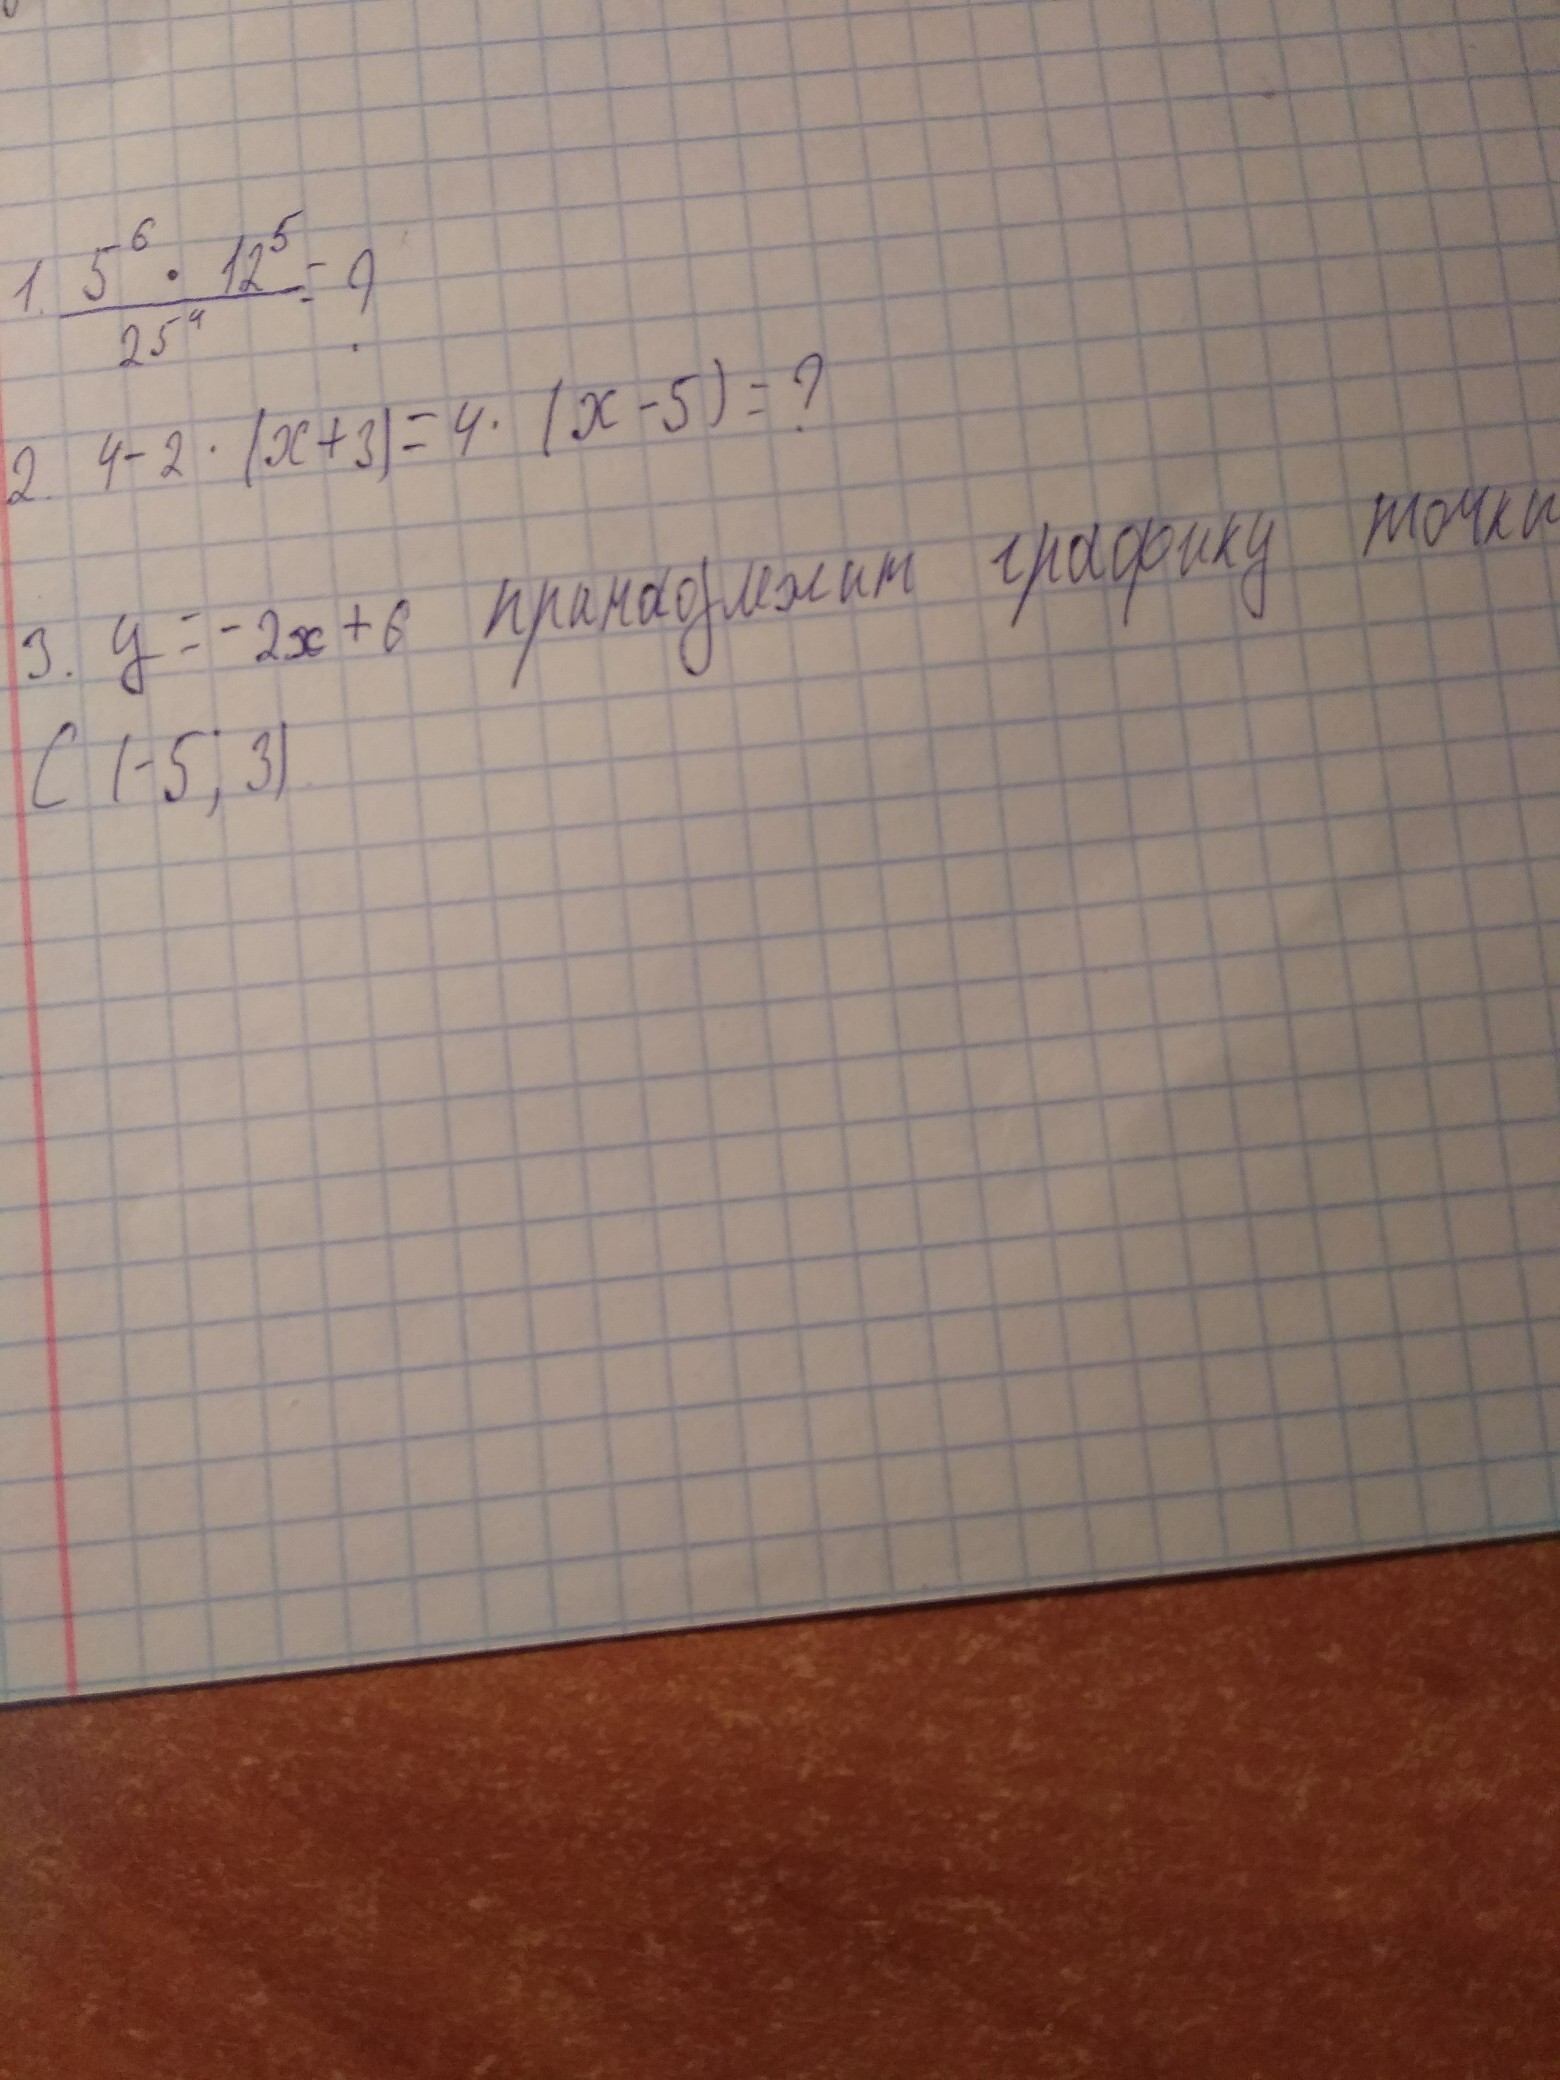 1. 5⁶ · 12⁵ / 25⁴ = ?
2. 4 - 2 · (x + 3) = 4 · (x - 5) = ?
3. y = -2x + 6 принадлежит графику точки
C (-5; 3)